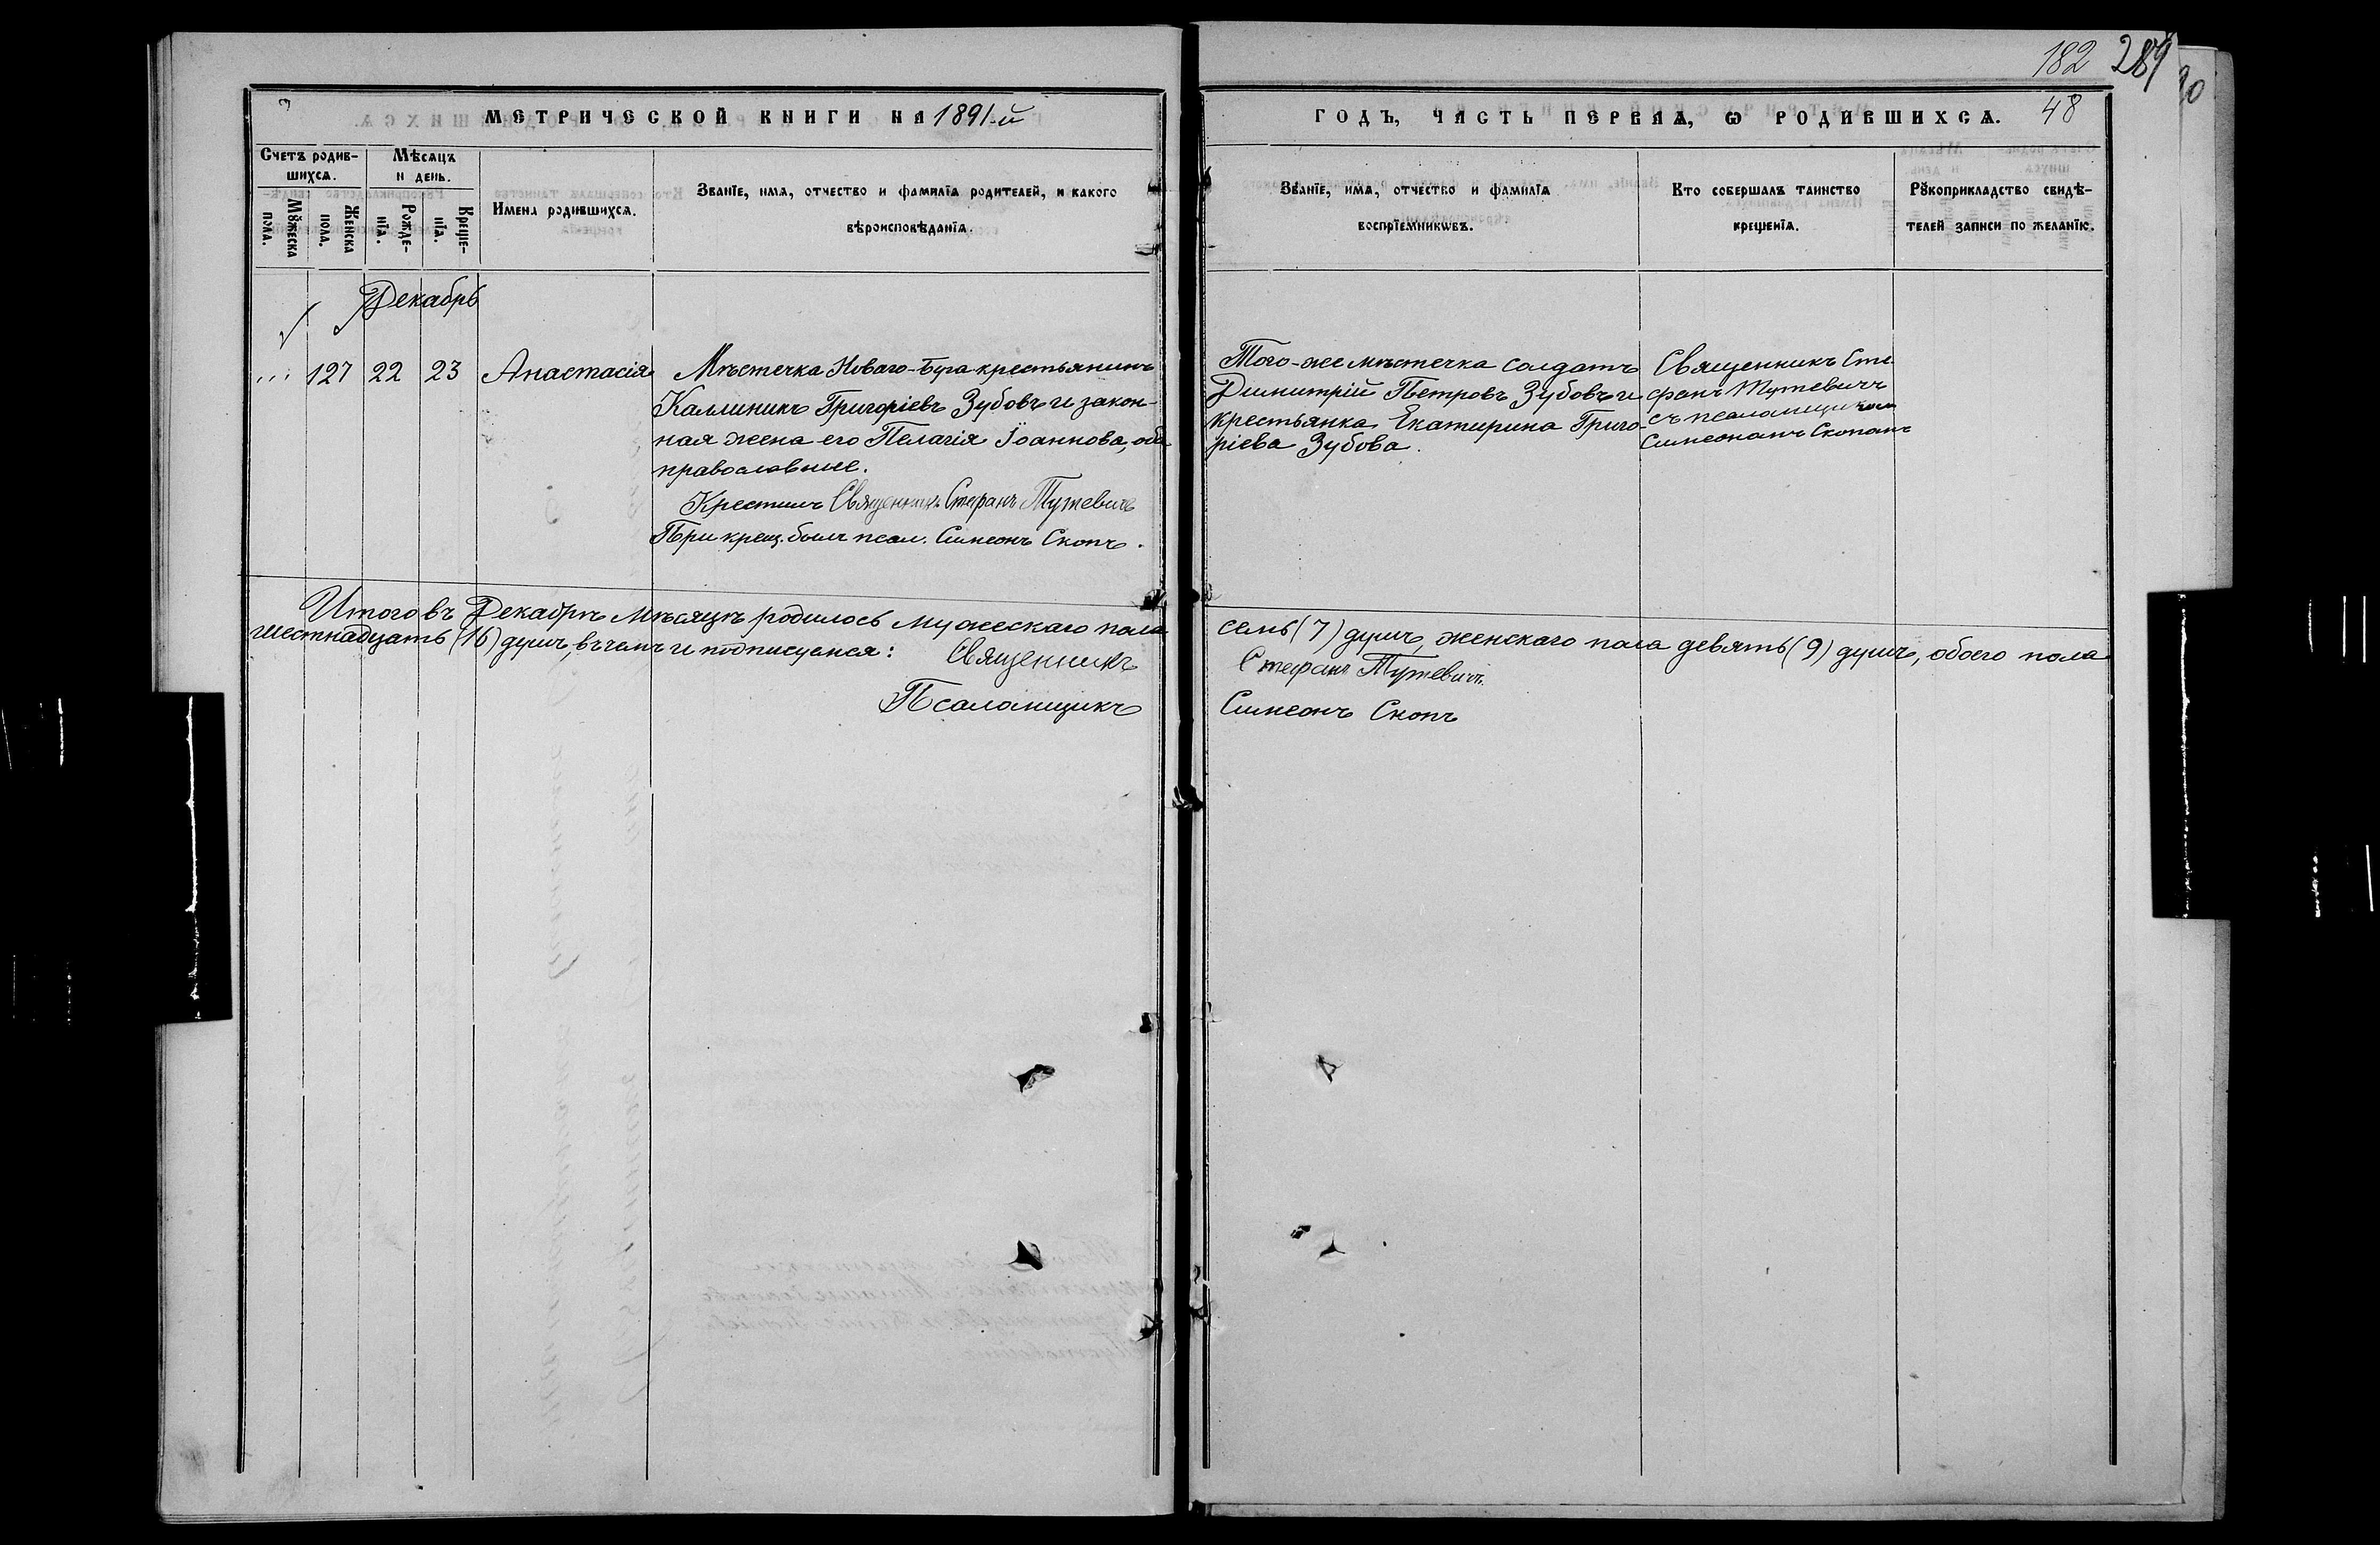 182 289
90
МЕТРИЧЕСКОЙ КНИГИ НА 1891-й
ГОДЪ, ЧАСТЬ ПЕРВАѦ, Ѡ РОДИВШИХСѦ. 48
Счетъ родив-
шихсѧ.
Мѣсѧцъ
и день.
Мꙋжеска
пола.
Женска
пола.
Рожде-
нїѧ.
Креще-
нїѧ.
Имена родившихсѧ.
Званїе, имѧ, отчество и фамилїѧ родителей, и какого
вѣроисповѣданїѧ.
Званїе, имѧ, отчество и фамилїѧ
воспрїемникѡвъ.
Кто совершалъ таинство
крещенїѧ.
Рꙋкоприкладство свидѣ-
телей записи по желанїю.
Декабрь
... 127 22 23 Анастасія
Мѣстечка Новаго-Буга крестьянинъ
Каллиникъ Григоріевъ Зубовъ и закон-
ная жена его Пелагія Іоаннова, оба
православные.
Крестилъ Священникъ Стефанъ Тутевичъ
При крещ. былъ псал. Симеонъ Скопъ.
Того-же мѣстечка солдатъ
Димитрій Петровъ Зубовъ и
крестьянка Екатерина Григо-
ріева Зубова.
Священникъ Сте-
фанъ Тутевичъ
съ псаломщикомъ
Симеономъ Скопомъ
Итого въ Декабрѣ мѣсяцѣ родилось мужескаго пола семь (7) душъ, женскаго пола девять (9) душъ, обоего пола
шестнадцать (16) душъ, въ чемъ и подписуемся: Священникъ Стефанъ Тутевичъ.
Псаломщикъ Симеонъ Скопъ